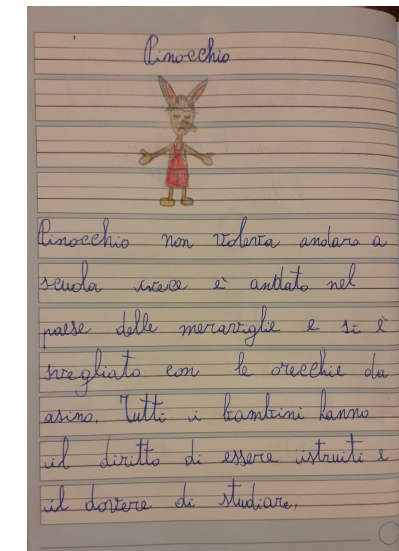 Pinocchio
Pinocchio non voleva andara a
scuola ivece è andato nel
paese delle meraviglie e si è
svegliato con le orecchie da
asino. Tutti i bambini hanno
il diritto di essere istruiti e
il dovere di studiare.